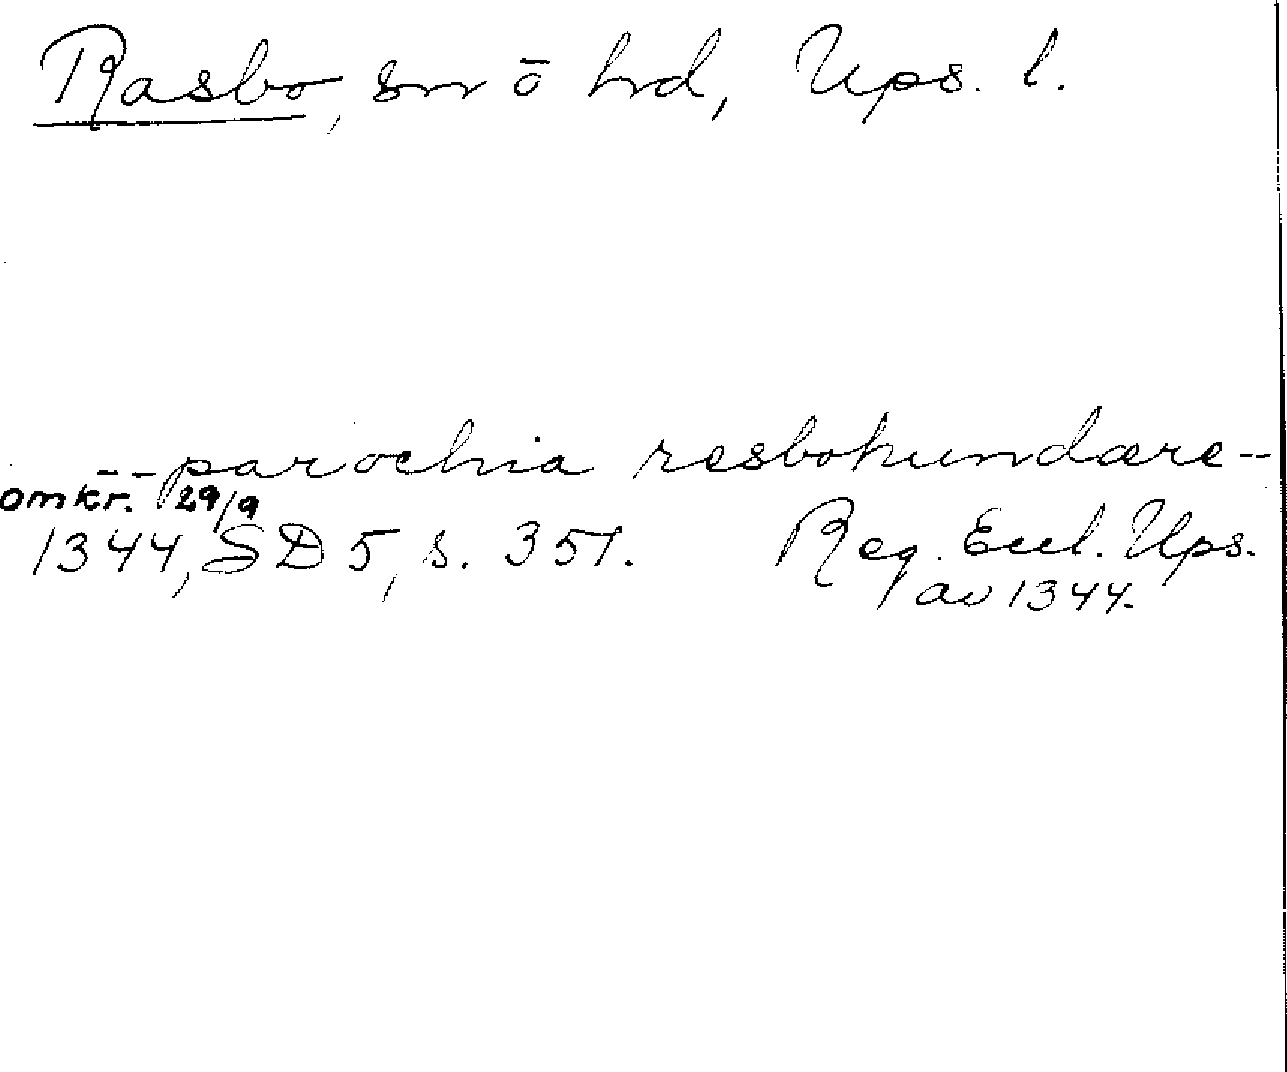 Rasbo, sn o hd, Ups. l.
-- parochia resbohundære --
omkr. 29/9
1344, SD 5, s. 351. Reg. Eccl. Ups.
av 1344.